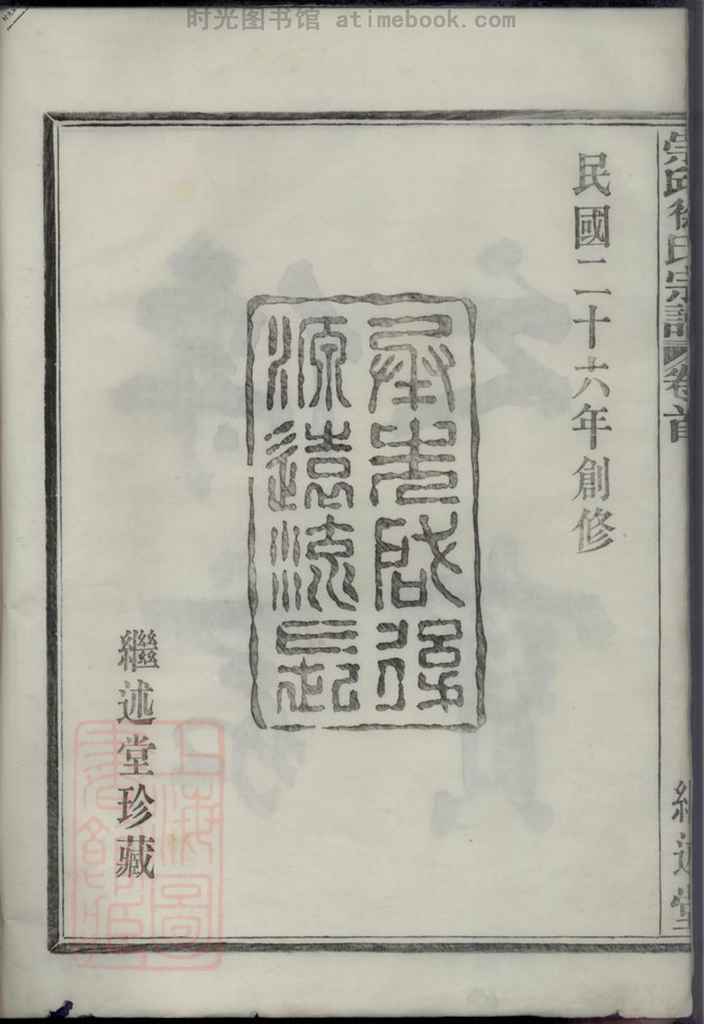 时光图书馆 atimebook.com
崇邱徐氏宗譜 卷首 繼述堂
民國二十六年創修
承先啟後
源遠流長
繼述堂珍藏
上海圖
書館藏